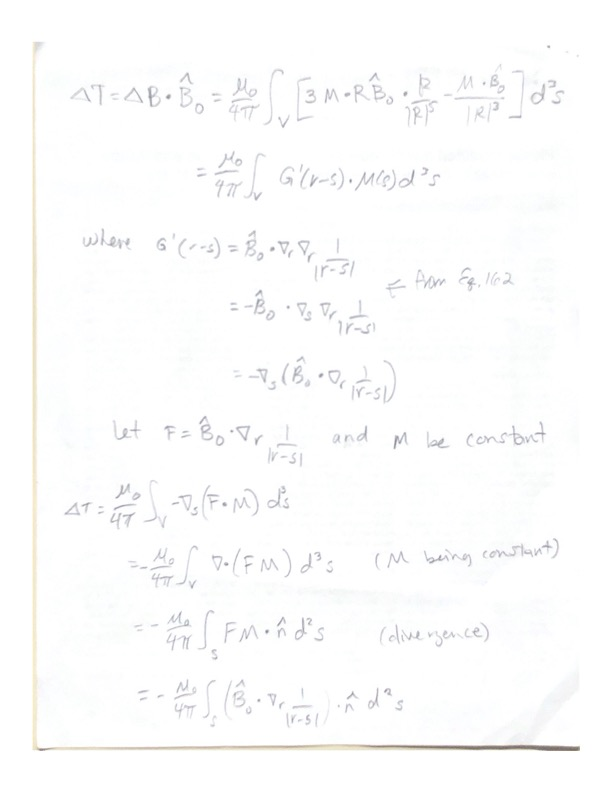 ΔT = ΔB · B̂₀ = μ₀/4π ∫_V [3 M·R B̂₀ · R/|R|⁵ − M·B̂₀/|R|³] d³s
= μ₀/4π ∫_V G'(r-s) · M(s) d³s
where G'(r-s) = B̂₀ · ∇ᵣ ∇ᵣ 1/|r-s|
← from Eq. 16.2
= -B̂₀ · ∇ₛ ∇ᵣ 1/|r-s|
= -∇ₛ (B̂₀ · ∇ᵣ 1/|r-s|)
Let F = B̂₀ · ∇ᵣ 1/|r-s| and M be constant
ΔT = μ₀/4π ∫_V -∇ₛ (F · M) d³s
= - μ₀/4π ∫_V ∇·(FM) d³s (M being constant)
= - μ₀/4π ∫_S FM · n̂ d²s (divergence)
= - μ₀/4π ∫_S (B̂₀ · ∇ᵣ 1/|r-s|) · n̂ d²s